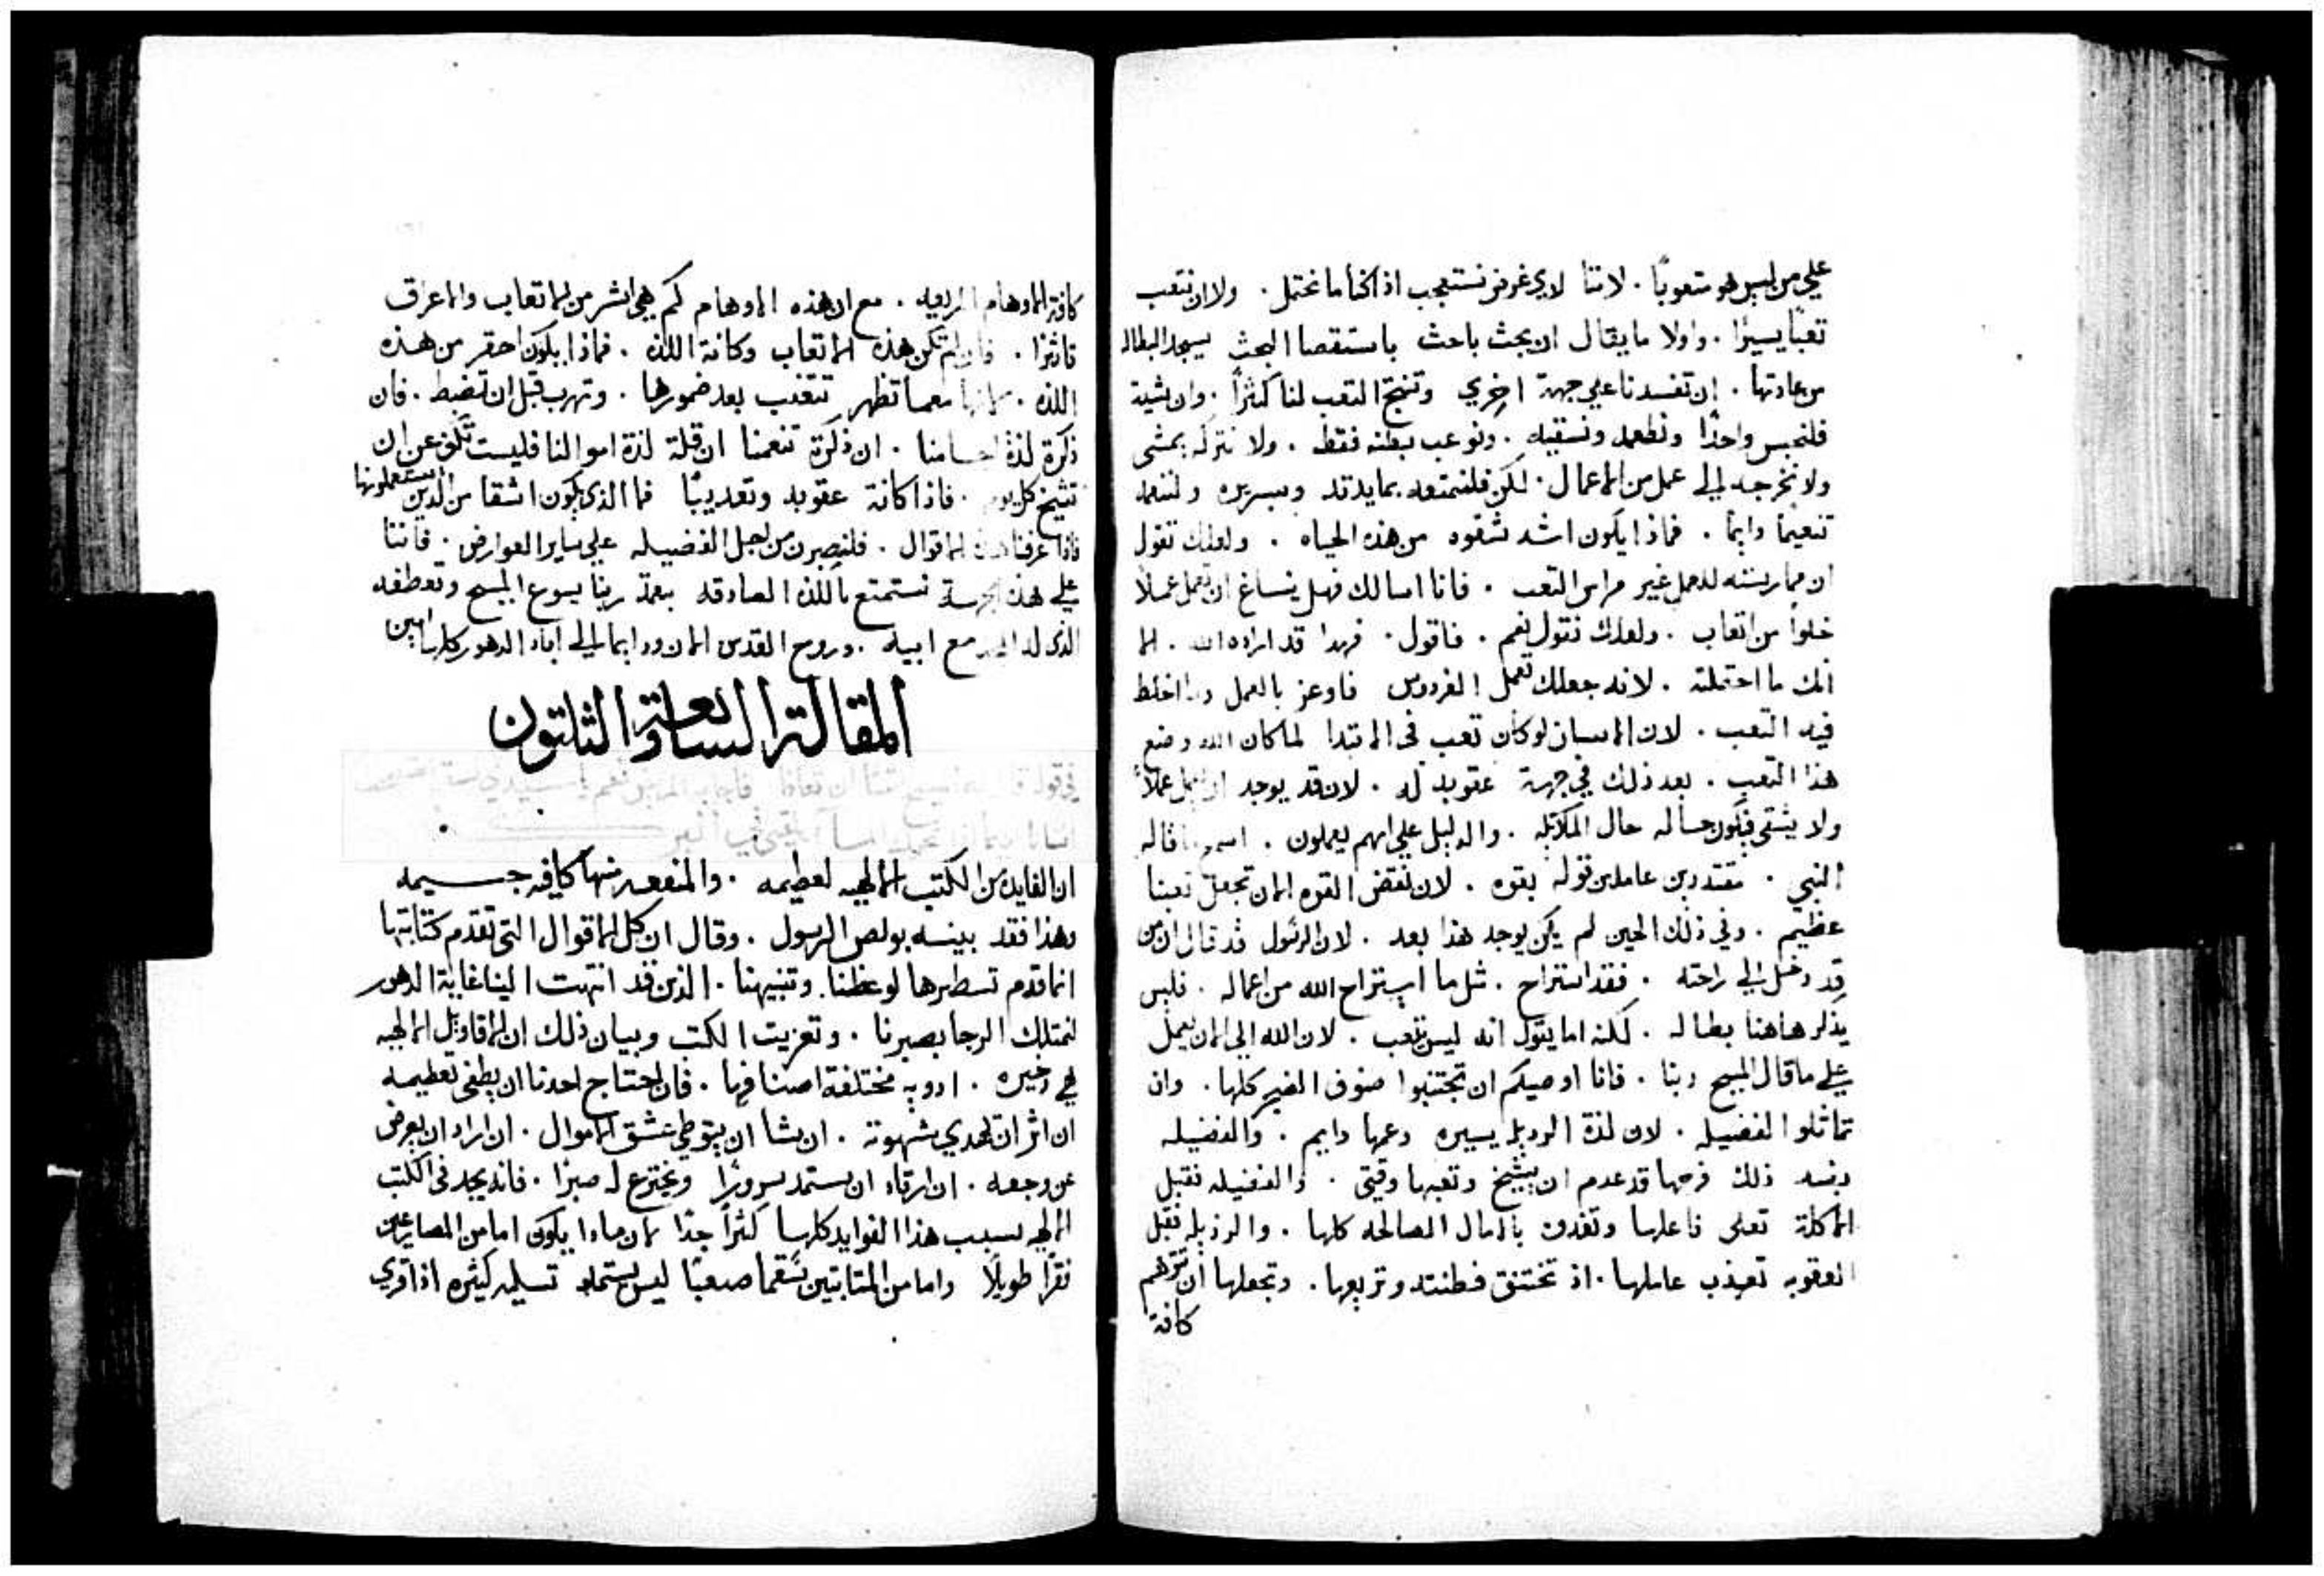 علي من ليس هو متعوبًا . لاننا لاي غرض نستعجب اذا كنا ما نحتمل . ولا ان نتعب
تعبًا يسيرًا . واولا ما يقال ان بحث باحث باستقصا البحث سيجد البطاله
من عادتها . ان تفسدنا علي جهة اخري وتنتج التعب لنا كثرًا . وان شيت
فلنحبس واحدًا ونطعمه ونسقيه . ونوعب بطنه فقط . ولا نتركه يمشي
ولا نخرجه الي عمل من الاعمال . لكن فلنمتعه بمايدته وسريره ولننعمه
تنعيمًا دايمًا . فماذا يكون اشد شقوه من هذه الحياه . ولعلك تقول
ان ممارسته للعمل غير مراس التعب . فانا اسالك فهل ينساغ ان تعمل عملًا
خلوًا من اتعاب . ولعلك تقول نعم . فاقول . فهذا قد اراده الله . الا
انك ما احتملته . لانه جعلك تعمل الفردوس فاوعز بالعمل وما اخلط
فيه التعب . لان الانسان لو كان تعب في الابتدا لما كان الله وضع
هذا التعب . بعد ذلك في جهة عقوبه له . لان قد يوجد ان يعمل عملًا
ولا يشقي فيكون حساله حال الملايكه . والدليل علي انهم يعملون . اسمع ما قاله
النبي . مقتدرين عاملين قوله بقوه . لان نقض القوه الان تجعل تعبنا
عظيم . وفي ذلك الحين لم يكن يوجد هذا بعد . لان الرسول قد قال ان من
قد دخل الي راحته . فقد استراح . مثل ما استراح الله من اعماله . فليس
يذكر هاهنا بطاله . لكنه اما يقول انه ليس تعب . لان الله الي الان يعمل
علي ما قال المسيح ربنا . فانا اوصيكم ان تجتنبوا صنوف الضير كلها . وان
تماثلوا الفضيله . لان لذة الرديله يسيره وغمها دايم . والفضيله
بضد ذلك فرحها قد عدم ان يشيخ وتعبها وقتي . والفضيله فقبل
الاكلة تعلي فاعلها وتغدوه بالامال الصالحه كلها . والرذيله فقبل
العقوبه تعذب عاملها . اذ تختنق فطنته وتريعها . وتجعلها ان تتوهم
كافة
كافة الاوهام الرديه . مع ان هذه الاوهام كم هي اشر من الاتعاب والاعراق
تاثرًا . فان لم تكن هذه الاتعاب وكانة اللذه . فماذا يكون احقر من هذه
اللذه . معما تظهر تتقنب بعد ضمورها . وتهرب قبل ان تضبط . فان
ذكرة لذة اجسامنا . ان ذكرة تنعمنا ان قلة لذة اموالنا فليست تكف عن ان
تشيخ كل يوم . فاذا كانة عقوبه وتعديبًا فما الذي يكون اشقا من الذين يستعملونها
فاذا عرفنا هذه الاقوال . فلنصبرن من اجل الفضيله علي ساير العوارض . فاننا
علي هذه الجهة نستمتع باللذه الصادقه بنعمة ربنا يسوع المسيح وتعطفه
الذي له المجد مع ابيه . وروح القدس الان ودايما الي اباد الدهور كلها امين
المقالة السابعة والثلثون
ان الفايده من الكتب الالهيه لعظيمه . والمنفعه منها كافيه جسيمه
وهذا فقد بينه بولص الرسول . وقال ان كل الاقوال التي تقدم كتابتها
انما قدم تسطيرها لوعظنا . وتنبيهنا . الذين قد انتهت الينا غاية الدهور
لنمتلك الرجا بصبرنا . وتعزيت الكتب وبيان ذلك ان الاقاويل الالهيه
هي ذخيره . ادويه مختلفة اصنافها . فان احتاج احدنا ان يطفي تعظيمه
ان اثر ان تهدي شهوته . ان يشا ان يتوطي عشق الاموال . ان اراد ان يعرض
عن وجعه . ان ارقاه ان يستمد سرورًا ويخترع له صبرًا . فانه يجد في الكتب
الالهيه لسبب هذا الفوايد كلها كثرًا جدًا لان ماذا يكون اما من المصارعين
نقرًا طويلًا واما من المتابتين سقما صعبًا ليس يستمد تسليه كثيره اذا قري